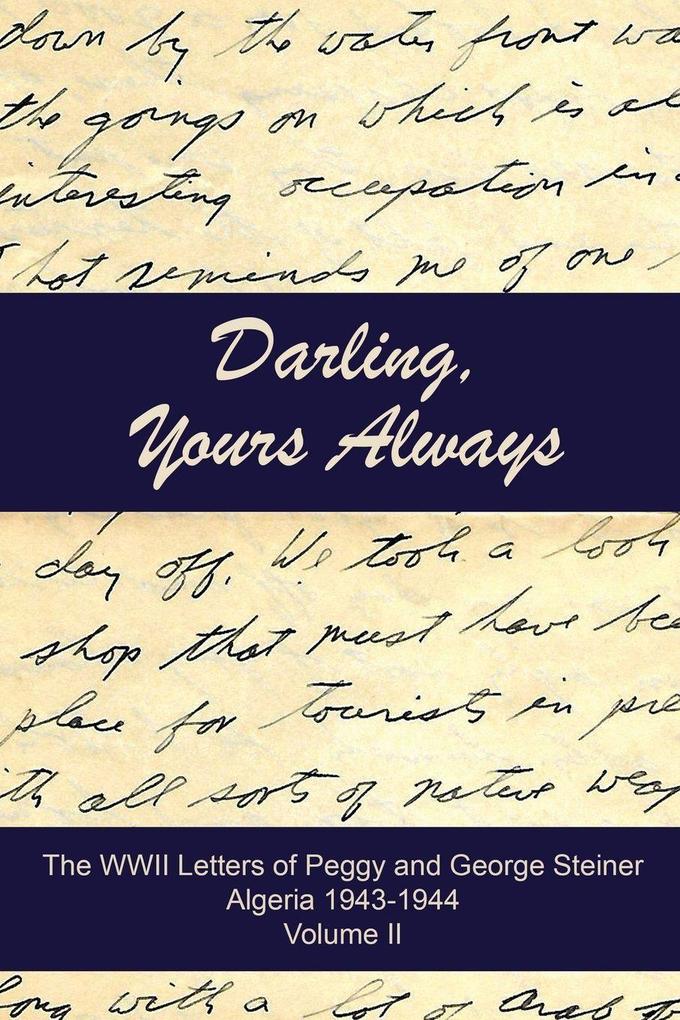 down by the water front wa
the goings on which is al
interesting occupation in
that reminds me of one
Darling,
Yours Always
day off. We took a look
shop that must have bee
place for tourists in pre
ith all sorts of native weap
The WWII Letters of Peggy and George Steiner
Algeria 1943-1944
Volume II
long with a lot of arab